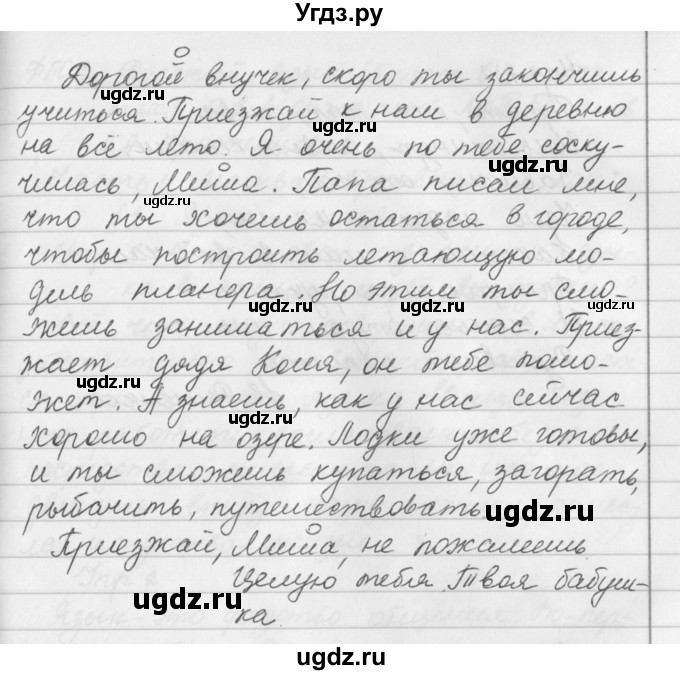 Угдз.ру
Дорогой внучек, скоро ты закончишь
ugdz.ru
учиться. Приезжай к нам в деревню
ugdz.ru
на всё лето. Я очень по тебе соску-
чилась, Миша. Папа писал мне,
ugdz.ru
что ты хочешь остаться в городе,
чтобы построить летающую мо-
дель планера. Но этим ты смо-
ugdz.ru
жешь заниматься и у нас. Приез-
жает дядя Коля, он тебе помо-
ugdz.ru
жет. А знаешь, как у нас сейчас
ugdz.ru
хорошо на озере. Лодки уже готовы,
и ты сможешь купаться, загорать,
рыбачить, путешествовать
ugdz.ru
Приезжай, Миша, не пожалеешь.
ugdz.ru
Целую тебя. Твоя бабуш-
ugdz.ru
ка.
ugdz.ru